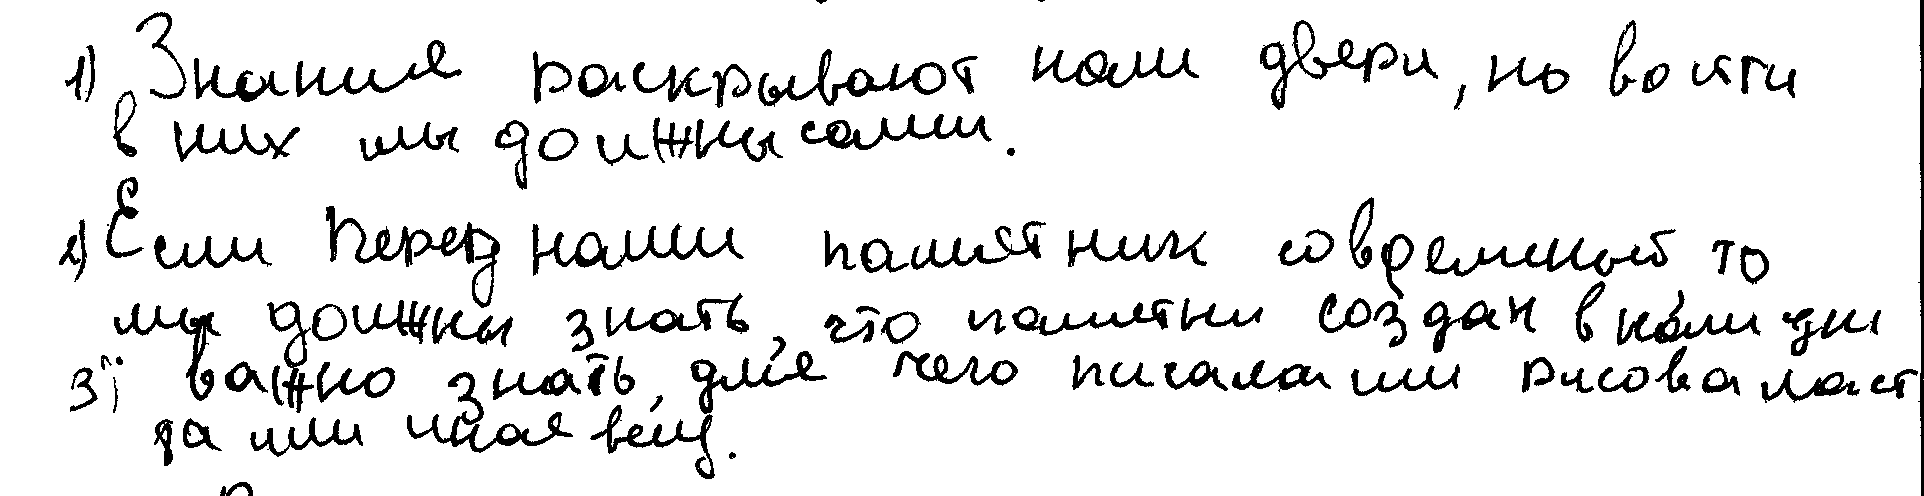 1) Знания раскрывают нам двери, но войти
в них мы должны сами.
2) Если перед нами памятник современый то
мы должны знать, что памятни создан в нами дни
3) важно знать, для чего писалаши рисоваласт
та или иная вещ.